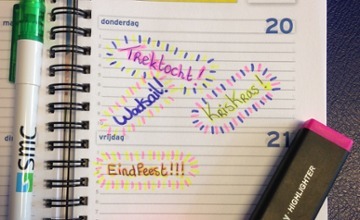 donderdag 20
Trektocht!
Waterval!
KrisKras!
vrijdag 21
EindFeest!!!
SMC
HIGHLIGHTER